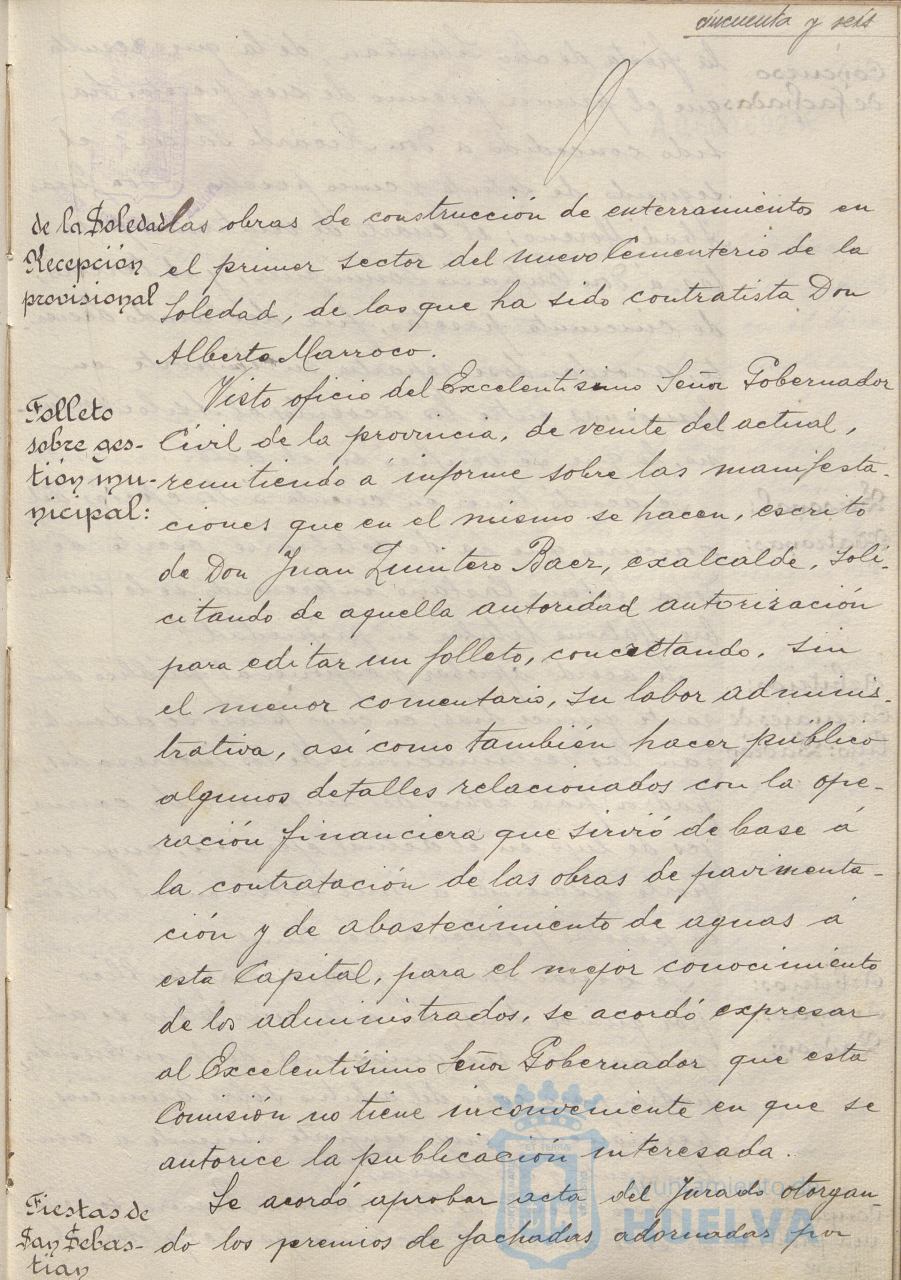 cincuenta y seis
de la Soledad
Recepción
provisional
las obras de construcción de enterramientos en
el primer sector del nuevo Cementerio de la
Soledad, de las que ha sido contratista Don
Alberto Marroco.
Folleto
sobre ges-
tión mu-
nicipal:
Visto oficio del Excelentísimo Señor Gobernador
Civil de la provincia, de veinte del actual,
remitiendo á informe sobre las manifesta-
ciones que en el mismo se hacen, escrito
de Don Juan Quintero Baez, exalcalde, soli-
citando de aquella autoridad autorización
para editar un folleto, concretando, sin
el menor comentario, su labor adminis-
trativa, así como también hacer público
algunos detalles relacionados con la ope-
ración financiera que sirvió de base á
la contratación de las obras de pavimenta-
ción y de abastecimiento de aguas á
esta Capital, para el mejor conocimiento
de los administrados, se acordó expresar
al Excelentísimo Señor Gobernador que esta
Comisión no tiene inconveniente en que se
autorice la publicación interesada.
Fiestas de
San Sebas-
tian
Se acordó aprobar acta del Jurado otorgan-
do los premios de fachadas adornadas por
HUELVA